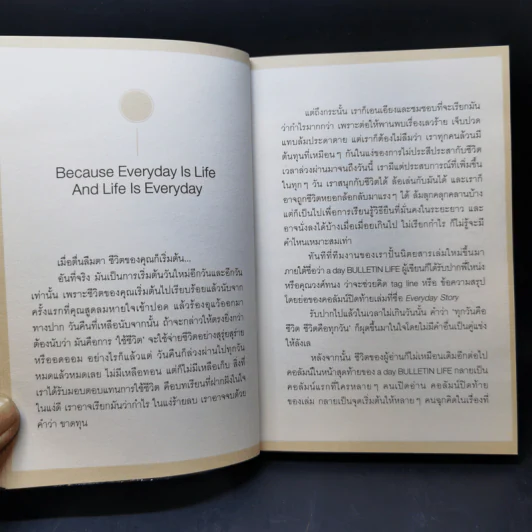 Because Everyday Is Life
And Life Is Everyday
เมื่อตื่นลืมตา ชีวิตของคุณก็เริ่มต้น...
อันที่จริง มันเป็นการเริ่มต้นวันใหม่อีกวันและอีกวัน
เท่านั้น เพราะชีวิตของคุณเริ่มต้นไปเรียบร้อยแล้วนับจาก
ครั้งแรกที่คุณสูดลมหายใจเข้าปอด แล้วร้องอุแว้ออกมา
ทางปาก วันคืนที่เหลือนับจากนั้น ถ้าจะกล่าวให้ตรงยิ่งกว่า
ต้องนับว่า มันคือการ 'ใช้ชีวิต' จะใช้ชีวิตอย่างสุรุ่ยสุร่าย
หรืออดออม อย่างไรก็แล้วแต่ วันคืนก็ล่วงผ่านไปทุกวัน
หมดแล้วหมดเลย ไม่มีเหลือทอน แต่ก็ไม่มีเหลือเก็บ สิ่งที่
เราได้รับมอบตอบแทนการใช้ชีวิต คือบทเรียนที่ฝากฝังในใจ
ในแง่ดี เราอาจเรียกมันว่ากำไร ในแง่ร้ายลบ เราอาจจบด้วย
คำว่า ขาดทุน
แต่ถึงกระนั้น เราก็เอนเอียงและชมชอบที่จะเรียกมัน
ว่ากำไรมากกว่า เพราะต่อให้พานพบเรื่องเลวร้าย เจ็บปวด
แทบล้มประดาตาย แต่เราก็ต้องไม่ลืมว่า เราทุกคนล้วนมี
ต้นทุนที่เหมือนๆ กันในแง่ของการไม่ประสีประสากับชีวิต
เวลาล่วงผ่านมาจนถึงวันนี้ เรามีแต่ประสบการณ์ที่เพิ่มขึ้น
ในทุกๆ วัน เราสนุกกับชีวิตได้ ล้อเล่นกับมันได้ และเราก็
อาจถูกชีวิตหยอกล้อกลับมาแรงๆ ได้ ล้มลุกคลุกคลานบ้าง
แต่ก็เป็นไปเพื่อการเรียนรู้วิธียืนที่มั่นคงในระยะยาว และ
อาจนั่งลงได้บ้างเมื่อเมื่อยเกินไป ไม่เรียกกำไร ก็ไม่รู้จะมี
คำไหนเหมาะสมเท่า
ทันทีที่ทีมงานของเราปั้นนิตยสารเล่มใหม่ขึ้นมา
ภายใต้ชื่อว่า a day BULLETIN LIFE ผู้เขียนก็ได้รับปากพี่โหน่ง
หรือคุณวงศ์ทนง ว่าจะช่วยคิด tag line หรือ ข้อความสรุป
โดยย่อของคอลัมน์ปิดท้ายเล่มที่ชื่อ Everyday Story
รับปากไปแล้วในเวลาไม่เกินวันนั้น คำว่า 'ทุกวันคือ
ชีวิต ชีวิตคือทุกวัน' ก็ผุดขึ้นมาในใจโดยไม่มีคำอื่นเป็นคู่แข่ง
ให้ลังเล
หลังจากนั้น ชีวิตของผู้อ่านก็ไม่เหมือนเดิมอีกต่อไป
คอลัมน์ในหน้าสุดท้ายของ a day BULLETIN LIFE กลายเป็น
คอลัมน์แรกที่ใครหลายๆ คนเปิดอ่าน คอลัมน์ปิดท้าย
ของเล่ม กลายเป็นจุดเริ่มต้นให้หลายๆ คนฉุกคิดในเรื่องที่